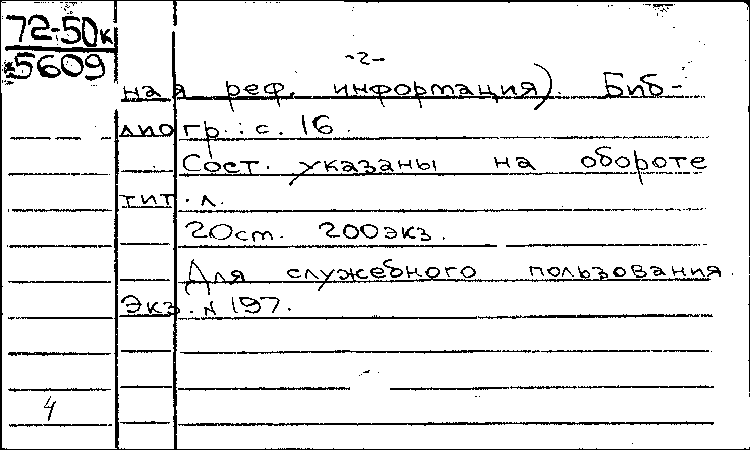 72-50к
5609
-2-
ная реф. информация). Биб-
лиогр.: с. 16.
Сост. указаны на обороте
тит. л.
20ст. 200экз.
Для служебного пользования.
Экз. № 197.
4